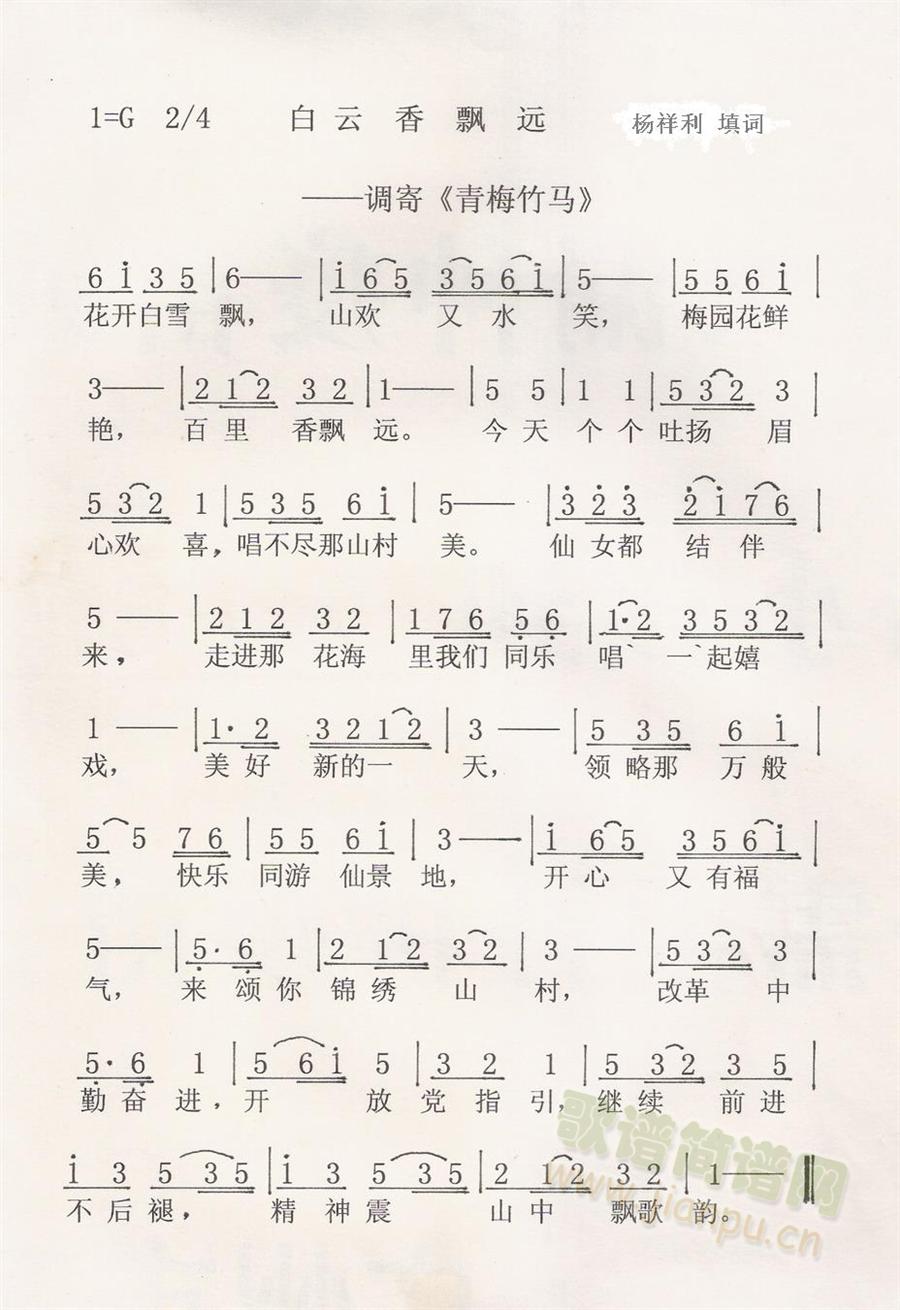 1=G 2/4 白云香飘远 杨祥利 填词
——调寄《青梅竹马》
6 i 3 5 | 6—— | i 6 5 3 5 6 i | 5—— | 5 5 6 i |
花开白雪 飘， 山欢 又 水 笑， 梅园花鲜
3—— | 2 1 2 3 2 | 1—— | 5 5 | 1 1 | 5 3 2 3 |
艳， 百 里 香飘 远。 今 天 个 个 吐扬 眉
5 3 2 1 | 5 3 5 6 i | 5—— | 3 2 3 2 i 7 6 |
心欢 喜，唱不尽那山村 美。 仙 女都 结 伴
5 —— | 2 1 2 3 2 | 1 7 6 5 6 | 1·2 3 5 3 2 |
来， 走进那 花海 里我们 同乐 唱` 一`起嬉
1 —— | 1· 2 3 2 1 2 | 3 —— | 5 3 5 6 i |
戏， 美 好 新的一 天， 领 略那 万 般
5 5 7 6 | 5 5 6 i | 3—— | i 6 5 3 5 6 i |
美， 快乐 同游 仙景 地， 开 心 又 有福
5—— | 5· 6 1 | 2 1 2 3 2 | 3 —— | 5 3 2 3
气， 来 颂你 锦 绣 山 村， 改革 中
5· 6 1 | 5 6 i 5 | 3 2 1 | 5 3 2 3 5 |
勤 奋 进，开 放 党 指 引，继续 前进
i 3 5 3 5 | i 3 5 3 5 | 2 1 2 3 2 | 1——
不 后 褪， 精 神 震 山 中 飘歌 韵。
歌谱简谱网
www.jianpu.cn